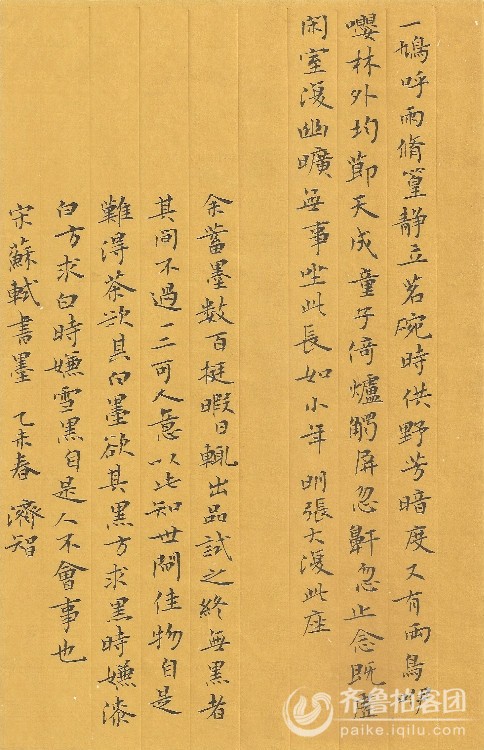 一鳩呼雨脩篁靜立茗碗時供野芳暗度又有兩鳥咿
嚶林外均節天成童子倚爐觸屏忽鼾忽止念既虛
閑室復幽曠無事坐此長如小年 明張大復此座
余蓄墨數百挺暇日輒出品試之終無黑者
其間不過一二可人意以此知世間佳物自是
難得茶欲其白墨欲其黑方求黑時嫌漆
白方求白時嫌雪黑自是人不會事也
宋蘇軾書墨 乙未春 濟智
齐鲁拍客团
paike.iqilu.com